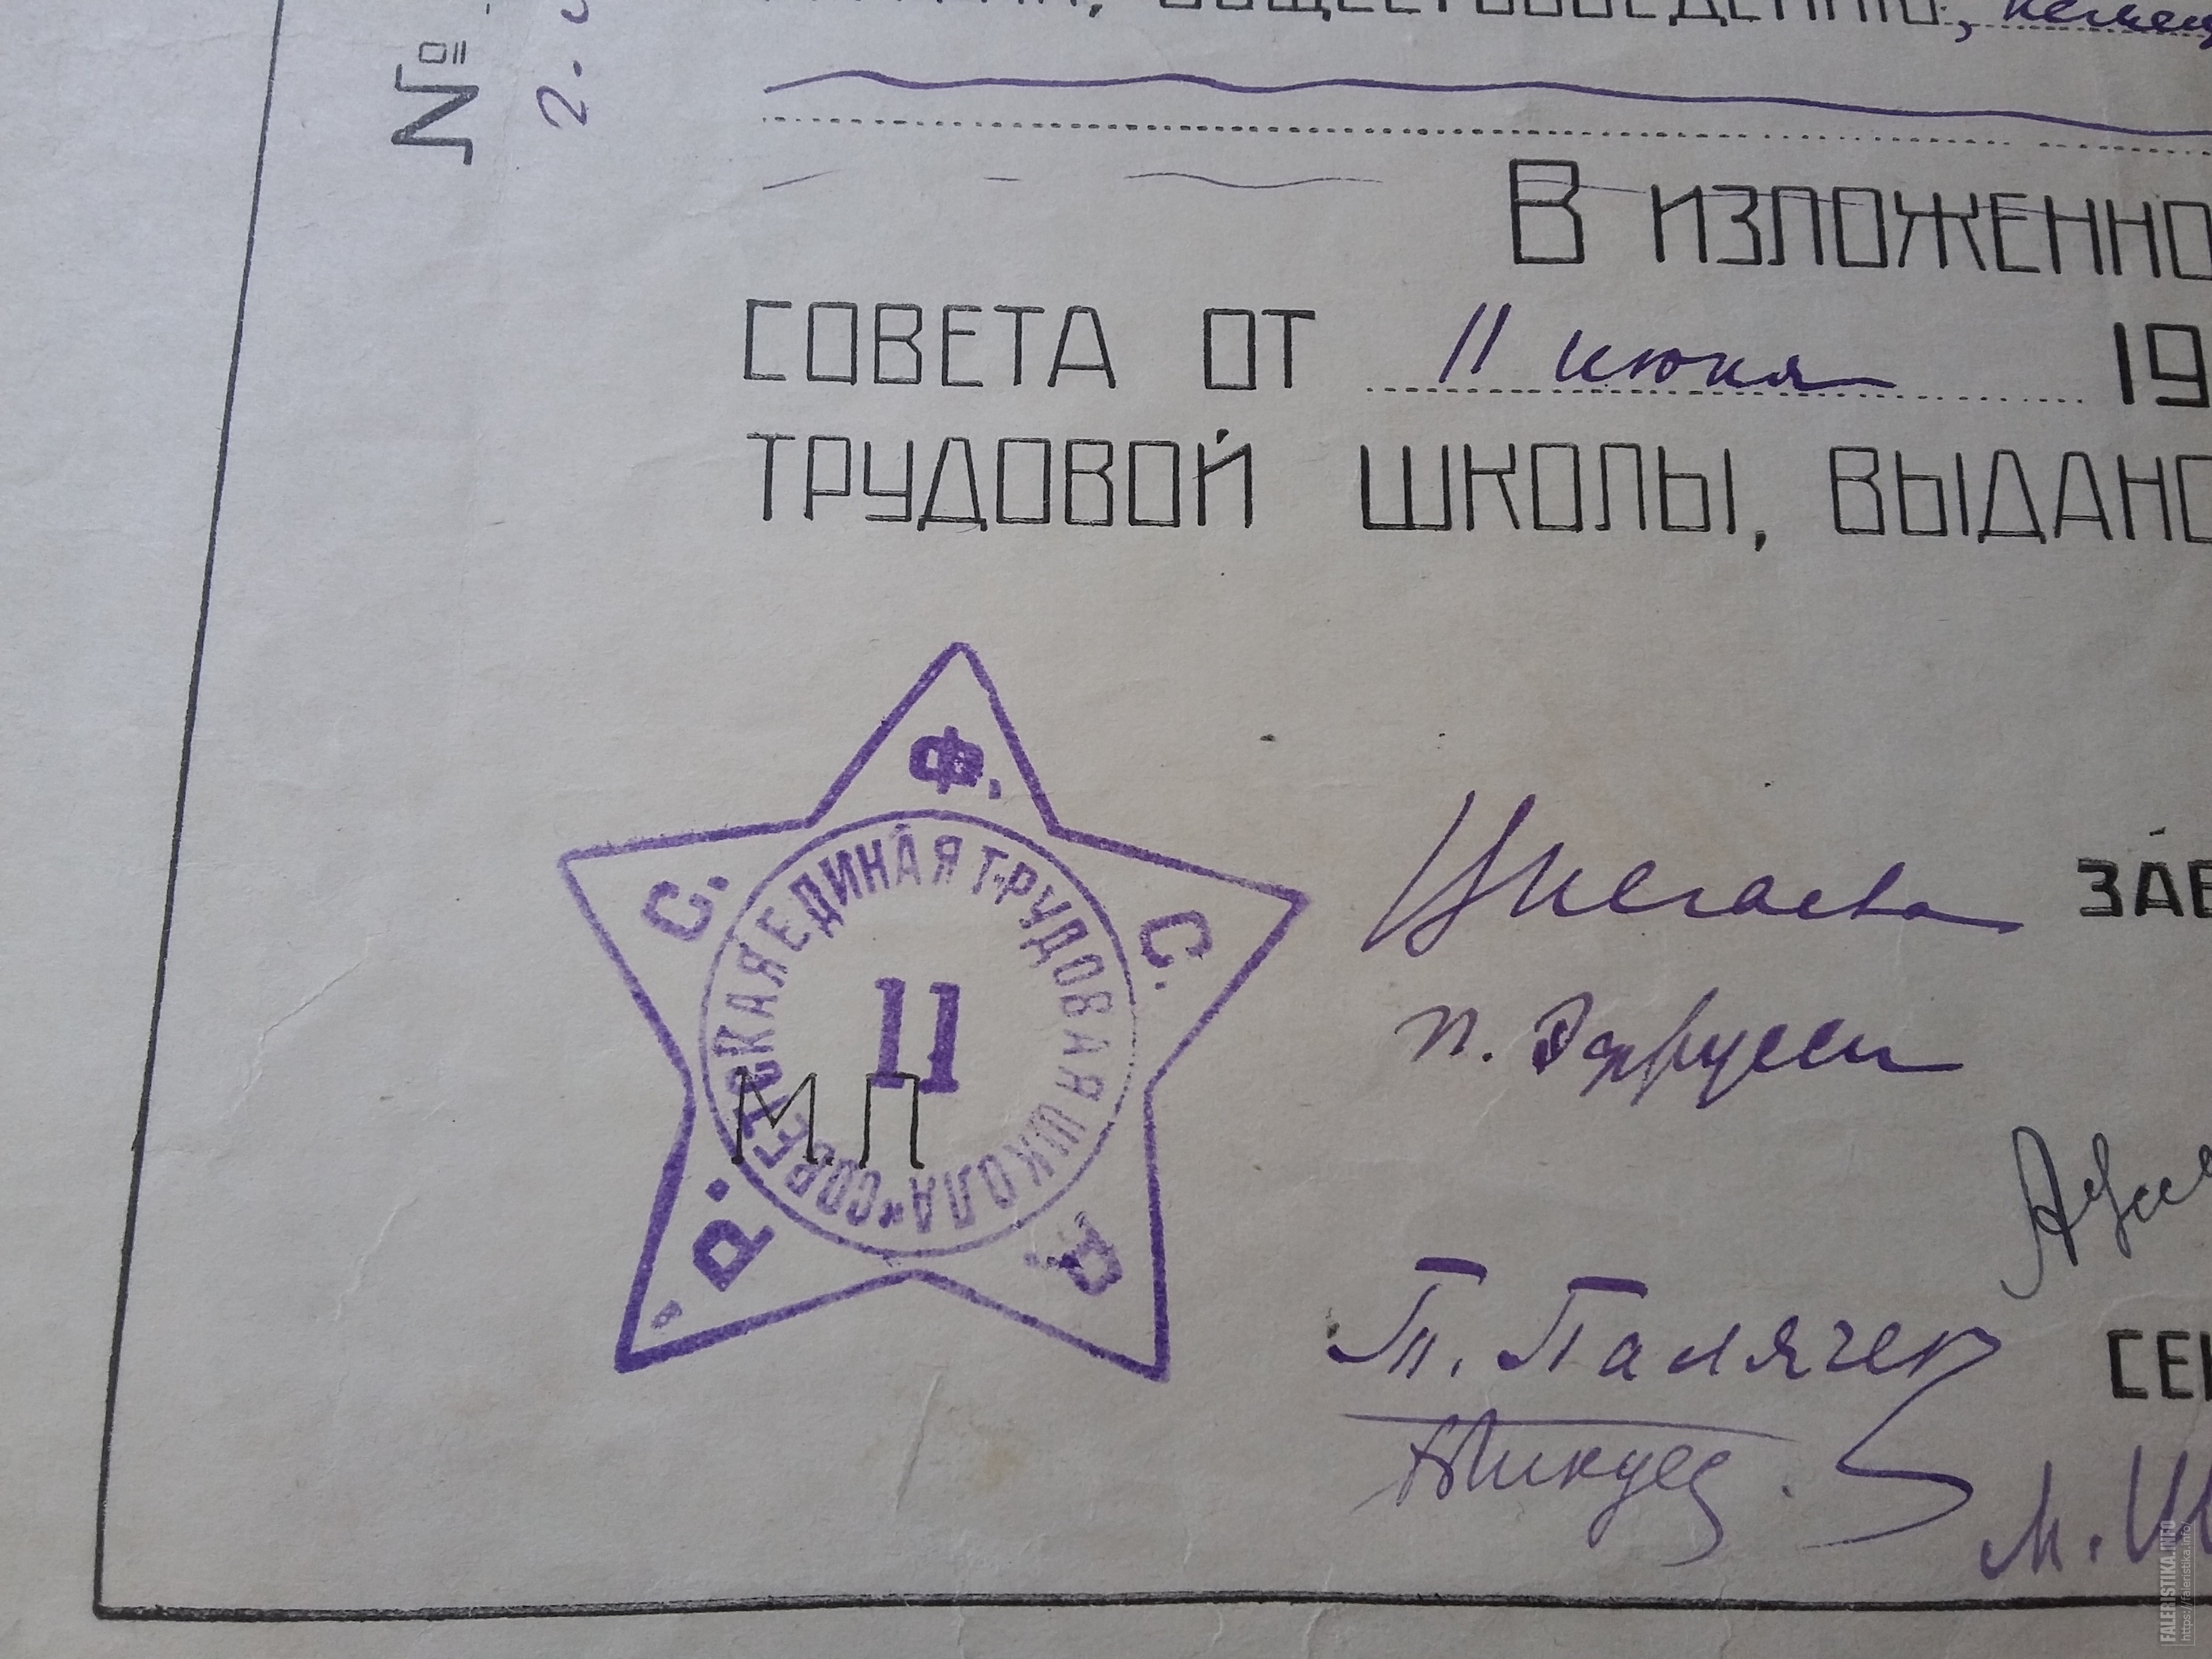 №
ОБЩЕСТВОВЕДЕНИЮ,
В ИЗЛОЖЕННО
СОВЕТА ОТ 11 июня 19
ТРУДОВОЙ ШКОЛЫ, ВЫДАНО
Р. С. Ф. С. Р.
СОВЕТСКАЯ ЕДИНАЯ ТРУДОВАЯ ШКОЛА
11
МП
ЗАВ
Т. Палячек
СЕК
FALERISTIKA.INFO
https://faleristika.info/